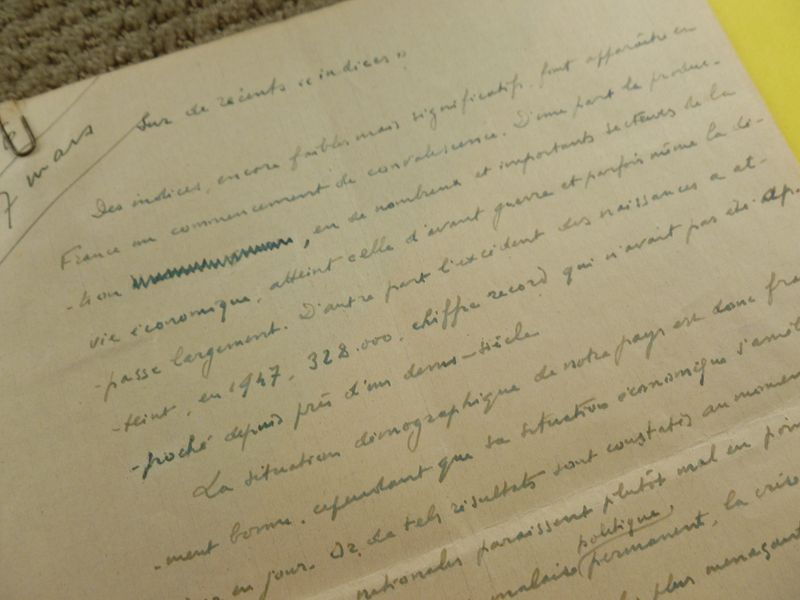 7 mars
Sur de récents « indices »
Des indices, encore faibles mais significatifs, font apparaître en
France un commencement de convalescence. D'une part la produc-
-tion, en de nombreux et importants secteurs de la
vie économique, atteint celle d'avant guerre et parfois même la dé-
-passe largement. D'autre part l'excédent des naissances a at-
-teint, en 1947, 328.000, chiffre record qui n'avait pas été ap-
-proché depuis près d'un demi-siècle.
La situation démographique de notre pays est donc fran
-ment bonne, cependant que sa situation économique s'amél
en jour. Or, de tels résultats sont constatés au moment
nationales paraissent plutôt mal en poin
politique
malaise permanent, la crise
plus menaçant